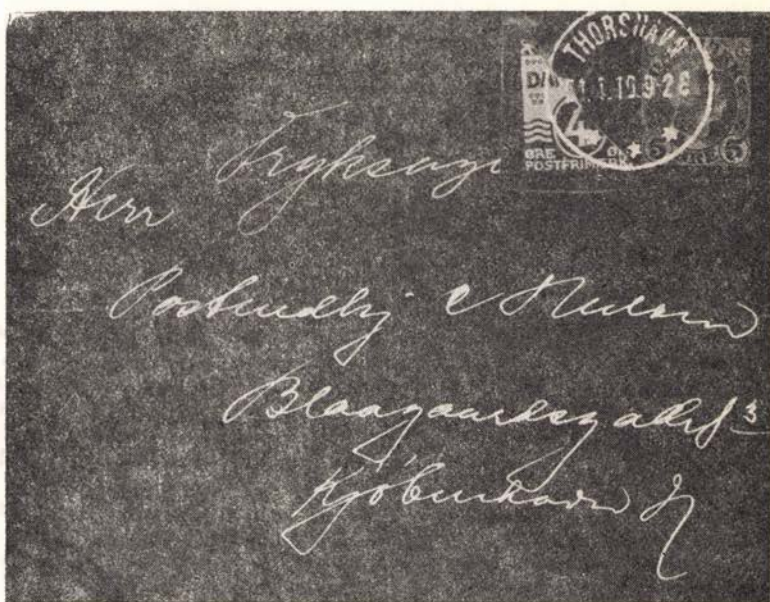 THORSHAVN
1.1.19.9-2E
4
ØRE
POSTFRIM
5 ØRE 5
Tryksager
Herr
Postindbj C Nielsen
Blaagaardsgade 3
Kjøbenhavn N